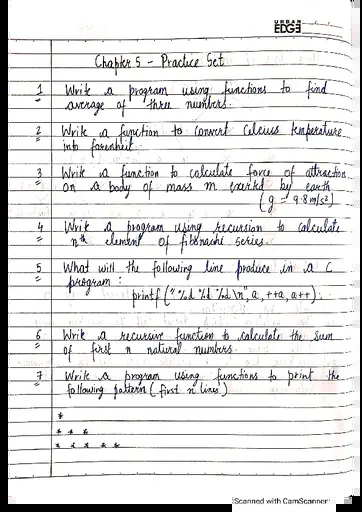 URBAN
EDGE
Chapter 5 - Practice Set
1 Write a program using functions to find
average of three numbers.
2 Write a function to convert Celcius temperature
into farenheit.
3 Write a function to calculate force of attraction
on a body of mass m exerted by earth
(g = 9.8 m/s²)
4 Write a program using recursion to calculate
nth element of fibonachi series.
5 What will the following line produce in a C
program :
printf ("%d %d %d \n", a, ++a, a++);
6 Write a recursive function to calculate the sum
of first n natural numbers.
7 Write a program using functions to print the
following pattern (first n lines)
*
* * *
* * * * *
Scanned with CamScanner